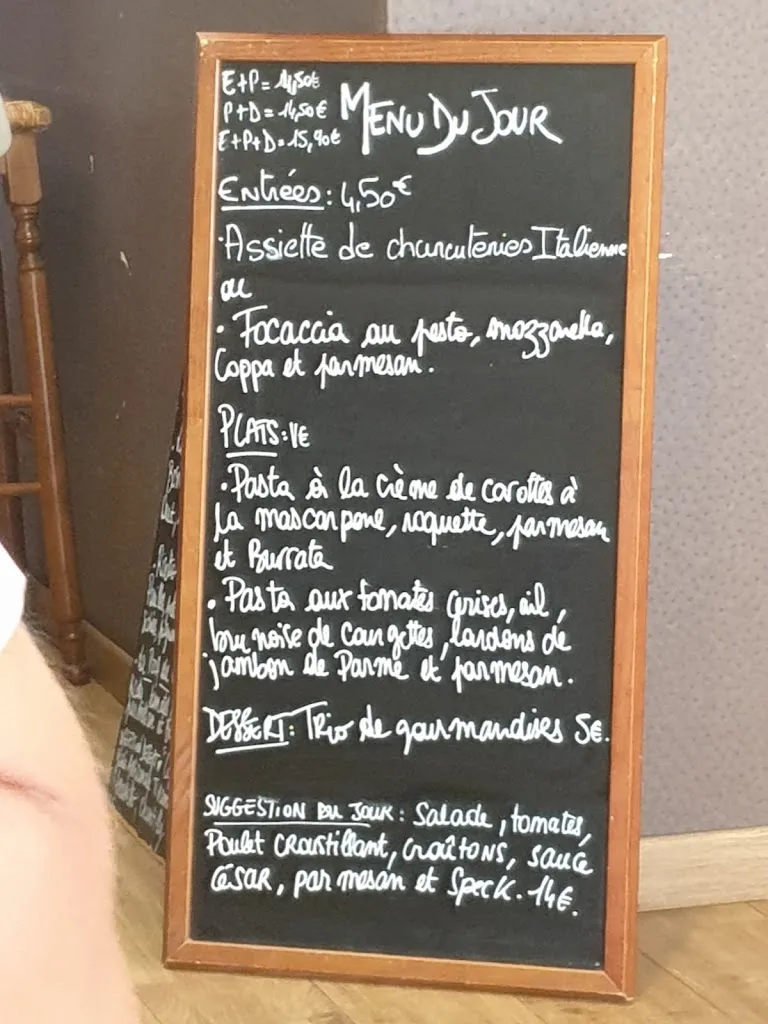 E+P= 14,50€
P+D= 14,50€
E+P+D= 15,90€
MENU DU JOUR
Entrées: 4,50€
·Assiette de charcuteries Italienne
ou
· Focaccia au pesto, mozzarella,
Coppa et parmesan.
PLATS:
·Pasta à la crème de carottes à
la mascarpone, roquette, parmesan
et Burrata
· Pasta aux tomates cerises, ail,
brunoise de courgettes, lardons de
jambon de Parme et parmesan.
DESSERT: Trio de gourmandises 5€.
SUGGESTION DU JOUR: Salade, tomates,
Poulet croustillant, croûtons, sauce
César, parmesan et Speck. 14€.